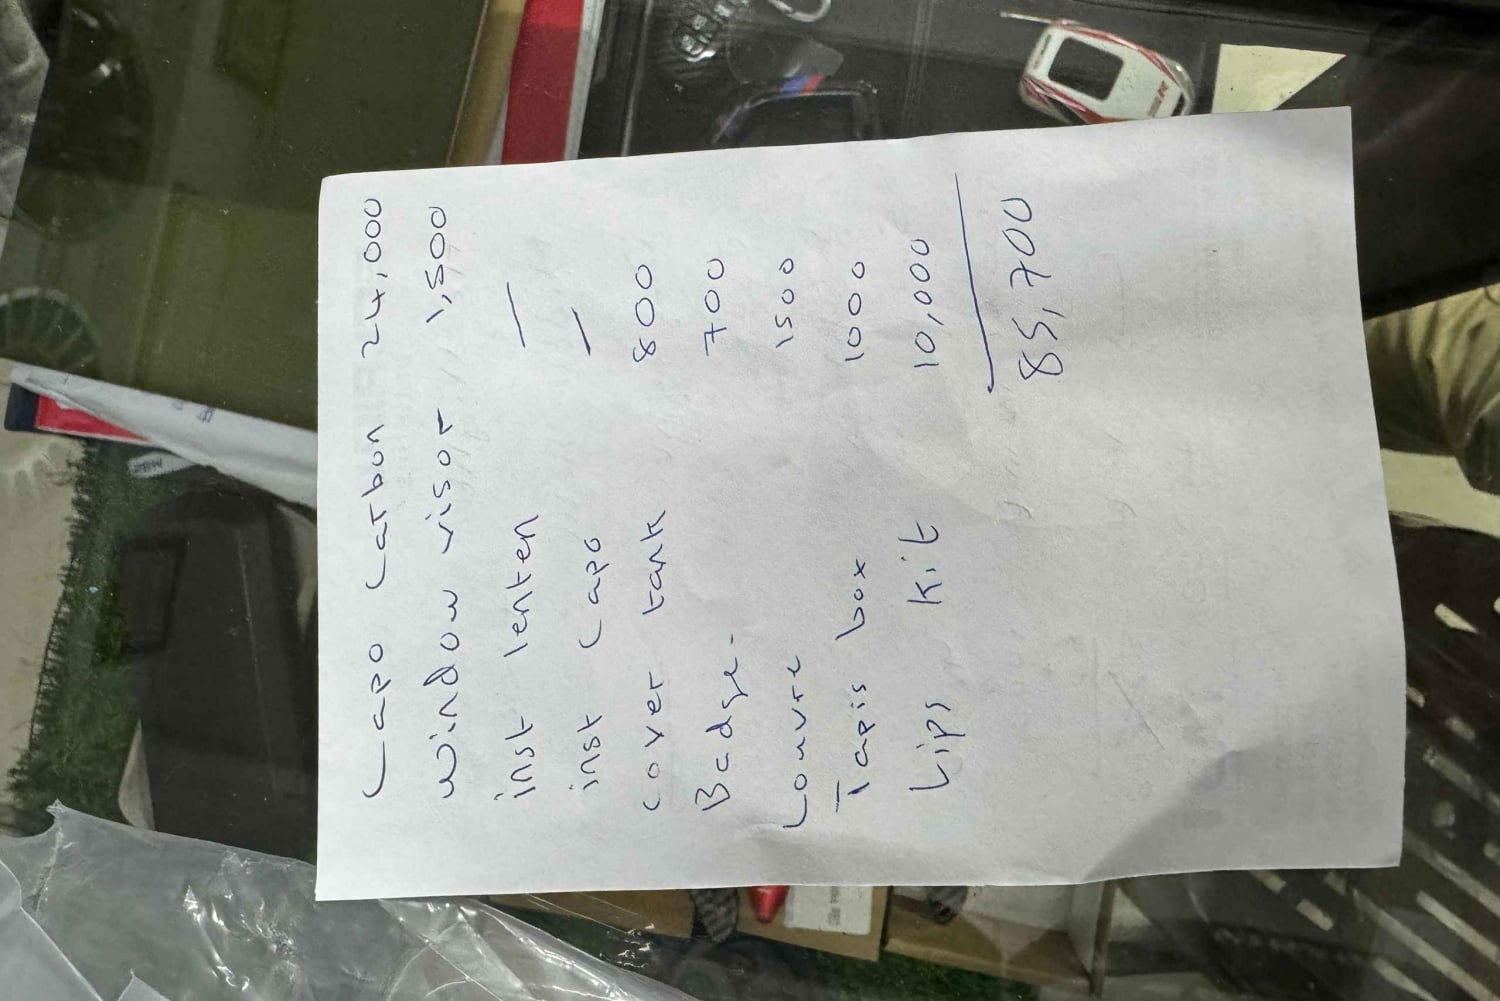 Capo Carbon 24,000
window visor 1,500
inst lenten —
inst Capo —
cover tank 800
Badge -
700
Louvre 1500
Tapis box 1000
Lips kit 10,000
85,700